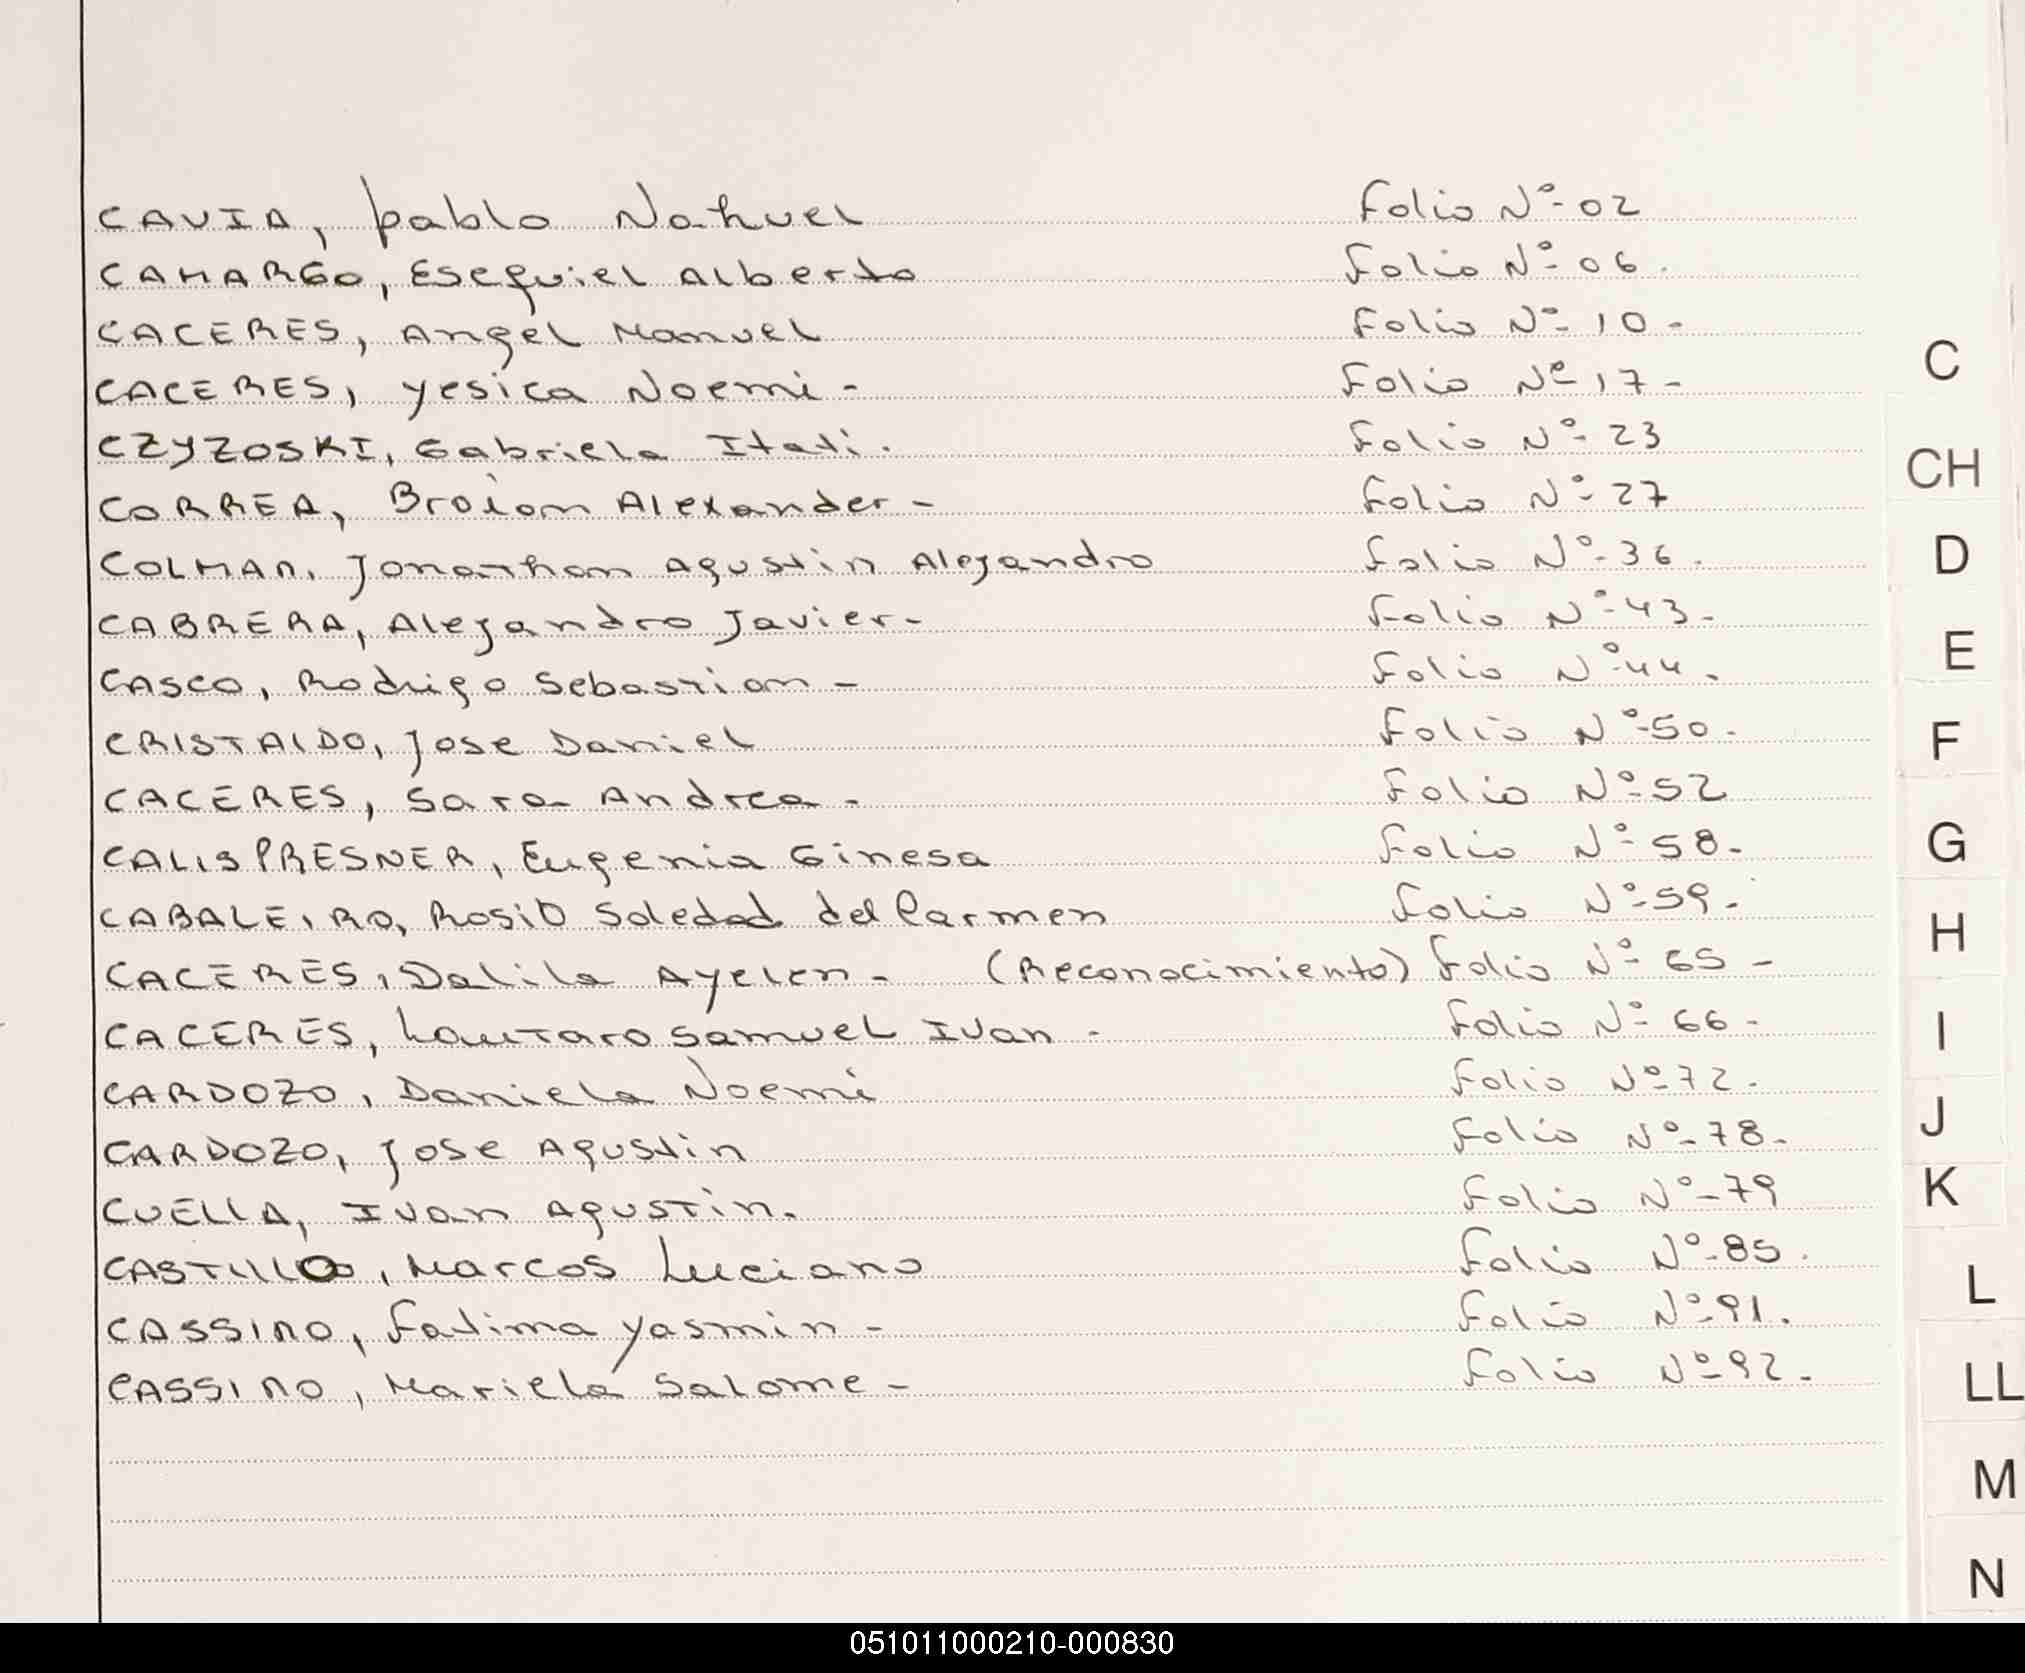 CAVIA, pablo Nahuel Folio Nº 02
CAMARGO, Esequiel Alberto Folio Nº 06.
CACERES, Angel Manuel Folio Nº 10-
CACERES, yesica Noemi- Folio Nº 17-
C
CZYZOSKI, Gabriela Itati. Folio Nº 23
CH
CORREA, Broiam Alexander- Folio Nº 27
COLMAN, Jonathan Agustin Alejandro Folio Nº 36.
D
CABRERA, Alejandro Javier- Folio Nº 43.
E
CASCO, Rodrigo Sebastian- Folio Nº 44.
CRISTALDO, Jose Daniel Folio Nº 50.
F
CACERES, Sara Andrea. Folio Nº 52
CALISPRESNER, Eugenia Ginesa Folio Nº 58.
G
CABALEIRO, Rosio Soledad del Carmen Folio Nº 59.
H
CACERES, Dalila Ayelen- (Reconocimiento) Folio Nº 65-
CACERES, Lautaro Samuel Ivan- Folio Nº 66-
I
CARDOZO, Daniela Noemi Folio Nº 72.
J
CARDOZO, Jose Agustin Folio Nº 78.
K
CUELLA, Ivan Agustin. Folio Nº 79
CASTILLO, Marcos Luciano Folio Nº 85.
L
CASSINO, Fatima yasmin- Folio Nº 91.
CASSINO, Mariela Salome- Folio Nº 92.
LL
M
N
051011000210-000830